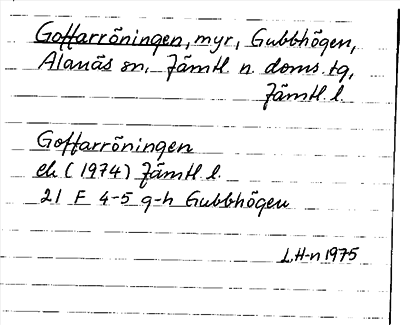 Goffarröningen, myr, Gubbhögen,
Alanäs sn, Jämtl. n. doms. tg,
Jämtl. l.
Goffarröningen
ek (1974) Jämtl. l.
21 F 4-5 g-h Gubbhögen
L.H-n 1975